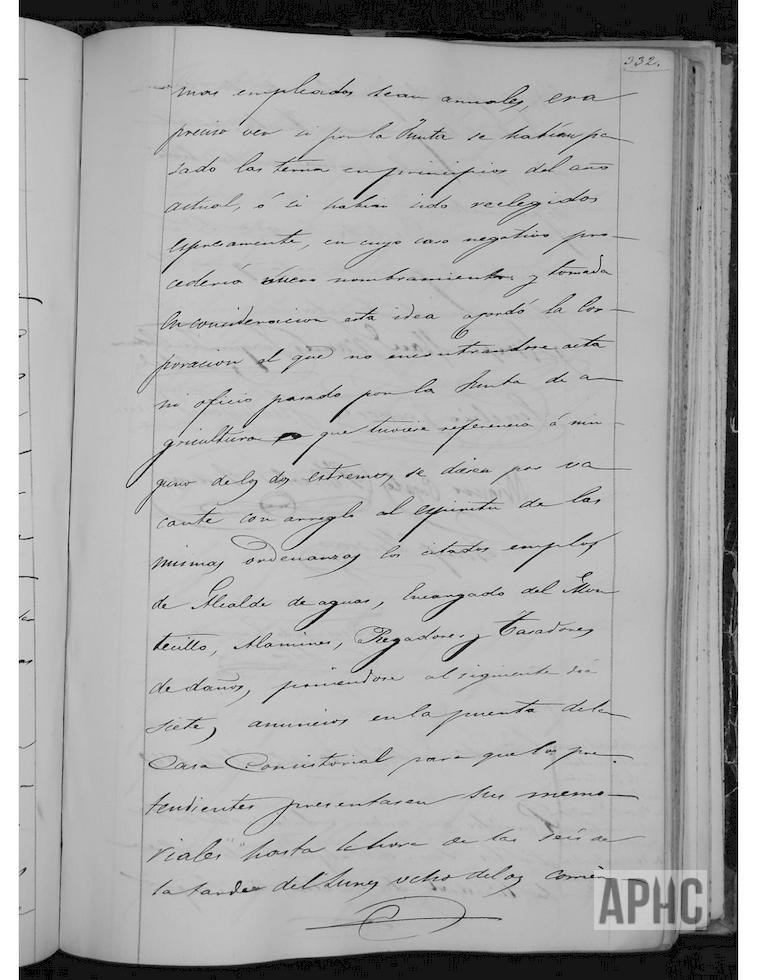 332.
mos empleados sean anuales, era
preciso ver si por la Junta se habían pa-
sado las ternas en principios del año
actual, ó si habian sido reelegidos
espresamente, en cuyo caso negativo pro-
cederia nuevo nombramiento y tomada
en consideracion esta idea acordó la Cor-
poracion el que no encontrandose acta
ni oficio pasado por la Junta de a-
gricultura que tuviese referencia á nin-
guno de los dos estremos, se diesen por va-
cante con arreglo al espiritu de las
mismas ordenanzas los citados empleos
de Alcalde de aguas, Encargado del Mon-
tecillo, Alamines, Regadores y Tasadores
de daños, poniendose al siguiente dia
siete, anuncios en la puerta de la
Casa Consistorial para que los pre-
tendientes presentasen sus memo-
riales hasta la hora de las seis de
la tarde del lunes ocho del
APHC